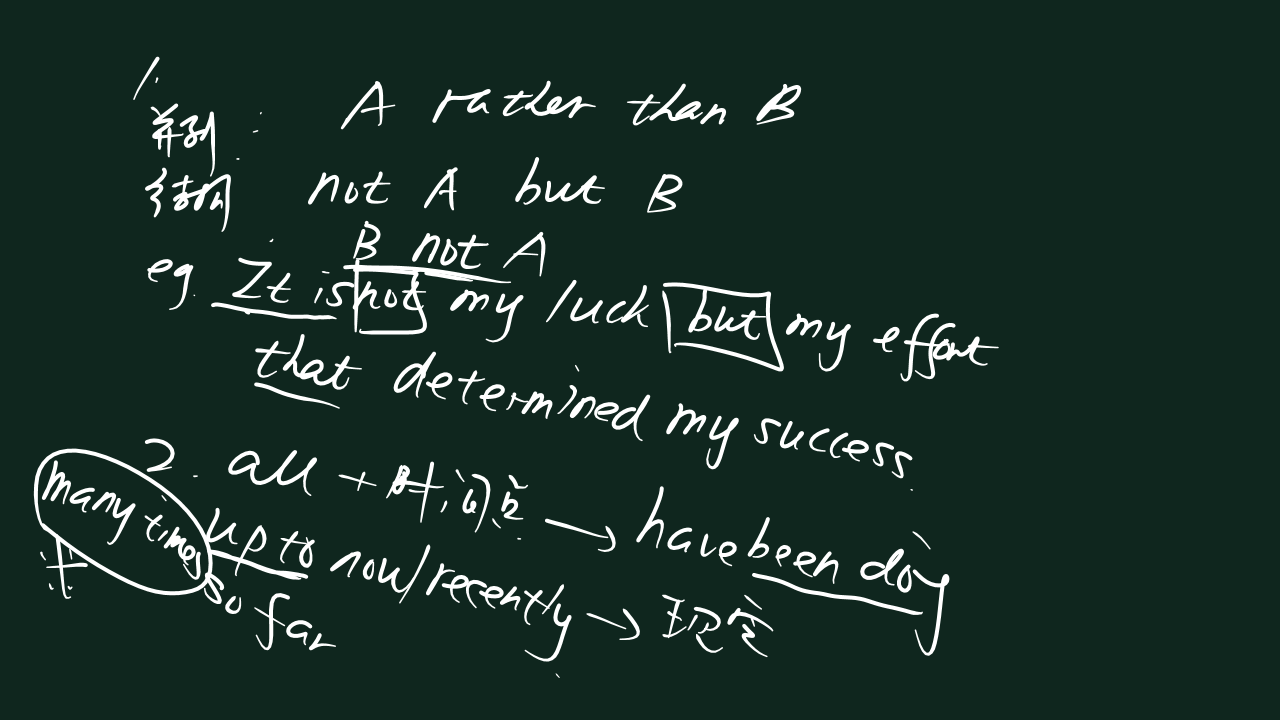 1.
并列: A rather than B
结构 not A but B
B not A
eg. It is not my luck but my effort
that determined my success.
2. all + 时间段 → have been doing
many times up to now/recently → 现完
so far